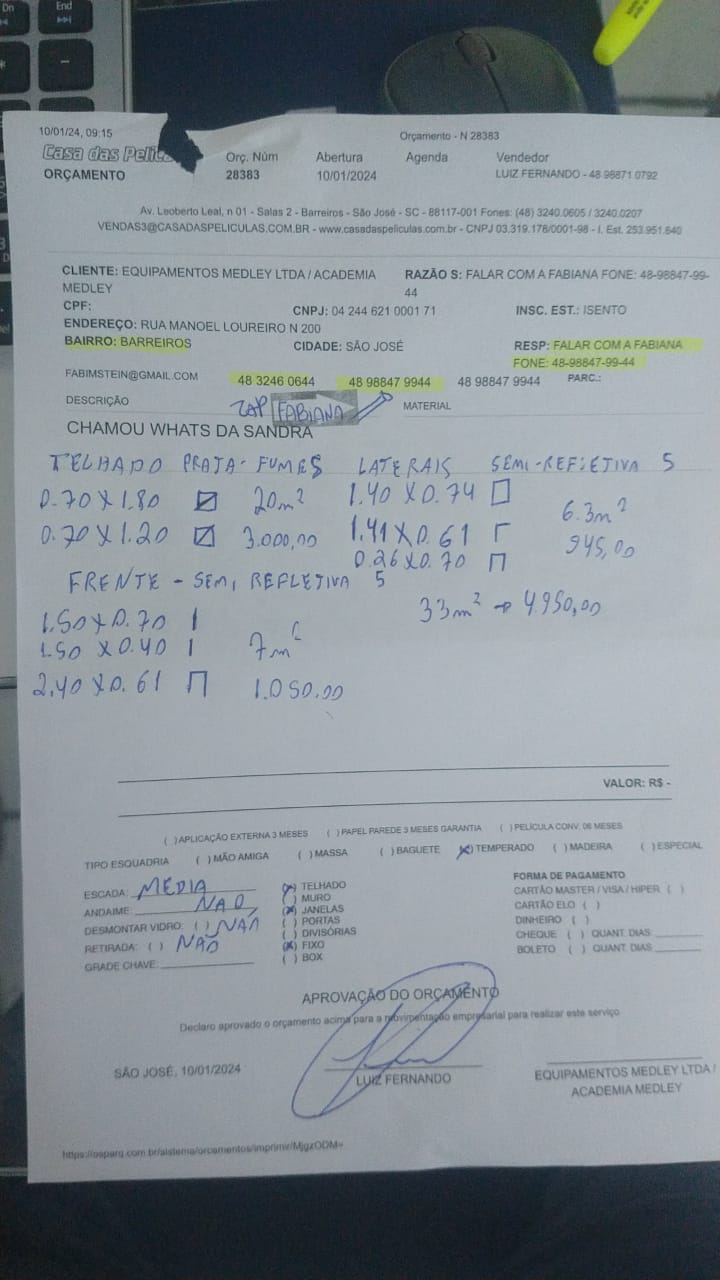 10/01/24, 09:15
Orçamento - N 28383
Casa das Pelic
ORÇAMENTO
Orç. Núm
28383
Abertura
10/01/2024
Agenda
Vendedor
LUIZ FERNANDO - 48 98871 0792
Av. Leoberto Leal, n 01 - Salas 2 - Barreiros - São José - SC - 88117-001 Fones: (48) 3240.0605 / 3240.0207
VENDAS3@CASADASPELICULAS.COM.BR - www.casadaspeliculas.com.br - CNPJ 03.319.178/0001-98 - I. Est. 253.951.640
CLIENTE: EQUIPAMENTOS MEDLEY LTDA / ACADEMIA
MEDLEY
RAZÃO S: FALAR COM A FABIANA FONE: 48-98847-99-
44
CPF:
CNPJ: 04 244 621 0001 71
INSC. EST.: ISENTO
ENDEREÇO: RUA MANOEL LOUREIRO N 200
BAIRRO: BARREIROS
CIDADE: SÃO JOSÉ
RESP: FALAR COM A FABIANA
FONE: 48-98847-99-44
FABIMSTEIN@GMAIL.COM
48 3246 0644
48 98847 9944
48 98847 9944
PARC.:
DESCRIÇÃO
ZAP FABIANA
MATERIAL
CHAMOU WHATS DA SANDRA
TELHADO PRATA-FUMES
LATERAIS SEMI-REFLETIVA 5
0.70 X 1.80
20m²
1.40 X 0.74
6.3m²
0.70 X 1.20
3.000,00
1.41 X 0.61
945,00
0.26 X 0.70
FRENTE - SEMI REFLETIVA 5
33m² → 4.950,00
1.50 X 0.70
1.50 X 0.40
7m²
2.40 X 0.61
1.050.00
VALOR: R$ -
( ) APLICAÇÃO EXTERNA 3 MESES ( ) PAPEL PAREDE 3 MESES GARANTIA ( ) PELÍCULA CONV. 06 MESES
TIPO ESQUADRIA ( ) MÃO AMIGA ( ) MASSA ( ) BAGUETE (X) TEMPERADO ( ) MADEIRA ( ) ESPECIAL
ESCADA: MEDIA
ANDAIME: NAO
DESMONTAR VIDRO: ( ) NÃO
RETIRADA: ( ) NÃO
GRADE CHAVE:
(X) TELHADO
( ) MURO
(X) JANELAS
( ) PORTAS
( ) DIVISÓRIAS
(X) FIXO
( ) BOX
FORMA DE PAGAMENTO
CARTÃO MASTER / VISA / HIPER ( )
CARTÃO ELO ( )
DINHEIRO ( )
CHEQUE ( ) QUANT. DIAS
BOLETO ( ) QUANT. DIAS
APROVAÇÃO DO ORÇAMENTO
Declaro aprovado o orçamento acima para a movimentação empresarial para realizar este serviço
SÃO JOSÉ, 10/01/2024
LUIZ FERNANDO
EQUIPAMENTOS MEDLEY LTDA /
ACADEMIA MEDLEY
https://osparq.com.br/sistema/orcamentos/imprimir/MjgzODM=